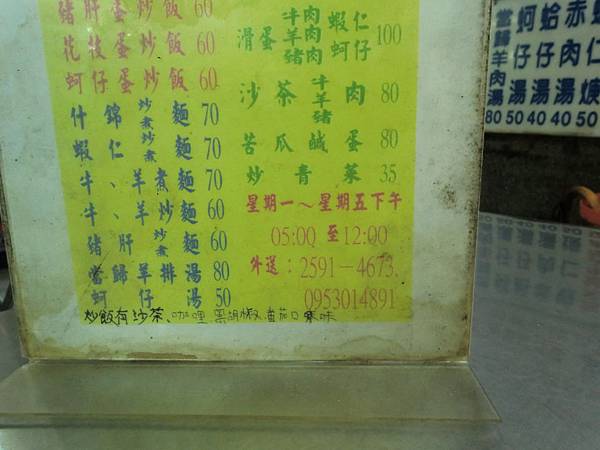 豬肝蛋炒飯 60
花枝蛋炒飯 60
蚵仔蛋炒飯 60
什錦炒煮麵 70
蝦仁炒煮麵 70
牛、羊煮麵 70
牛、羊炒麵 60
豬肝炒煮麵 60
當歸羊排湯 80
蚵仔湯 50
滑蛋牛肉羊肉豬肉蝦仁蚵仔 100
沙茶牛羊豬肉 80
苦瓜鹹蛋 80
炒青菜 35
星期一～星期五下午
05:00 至 12:00
外送：2591－4673.
0953014891
炒飯有沙茶、咖哩、黑胡椒、蕃茄口味
當歸羊肉湯 80
蚵仔湯 50
蛤仔湯 40
赤肉湯 40